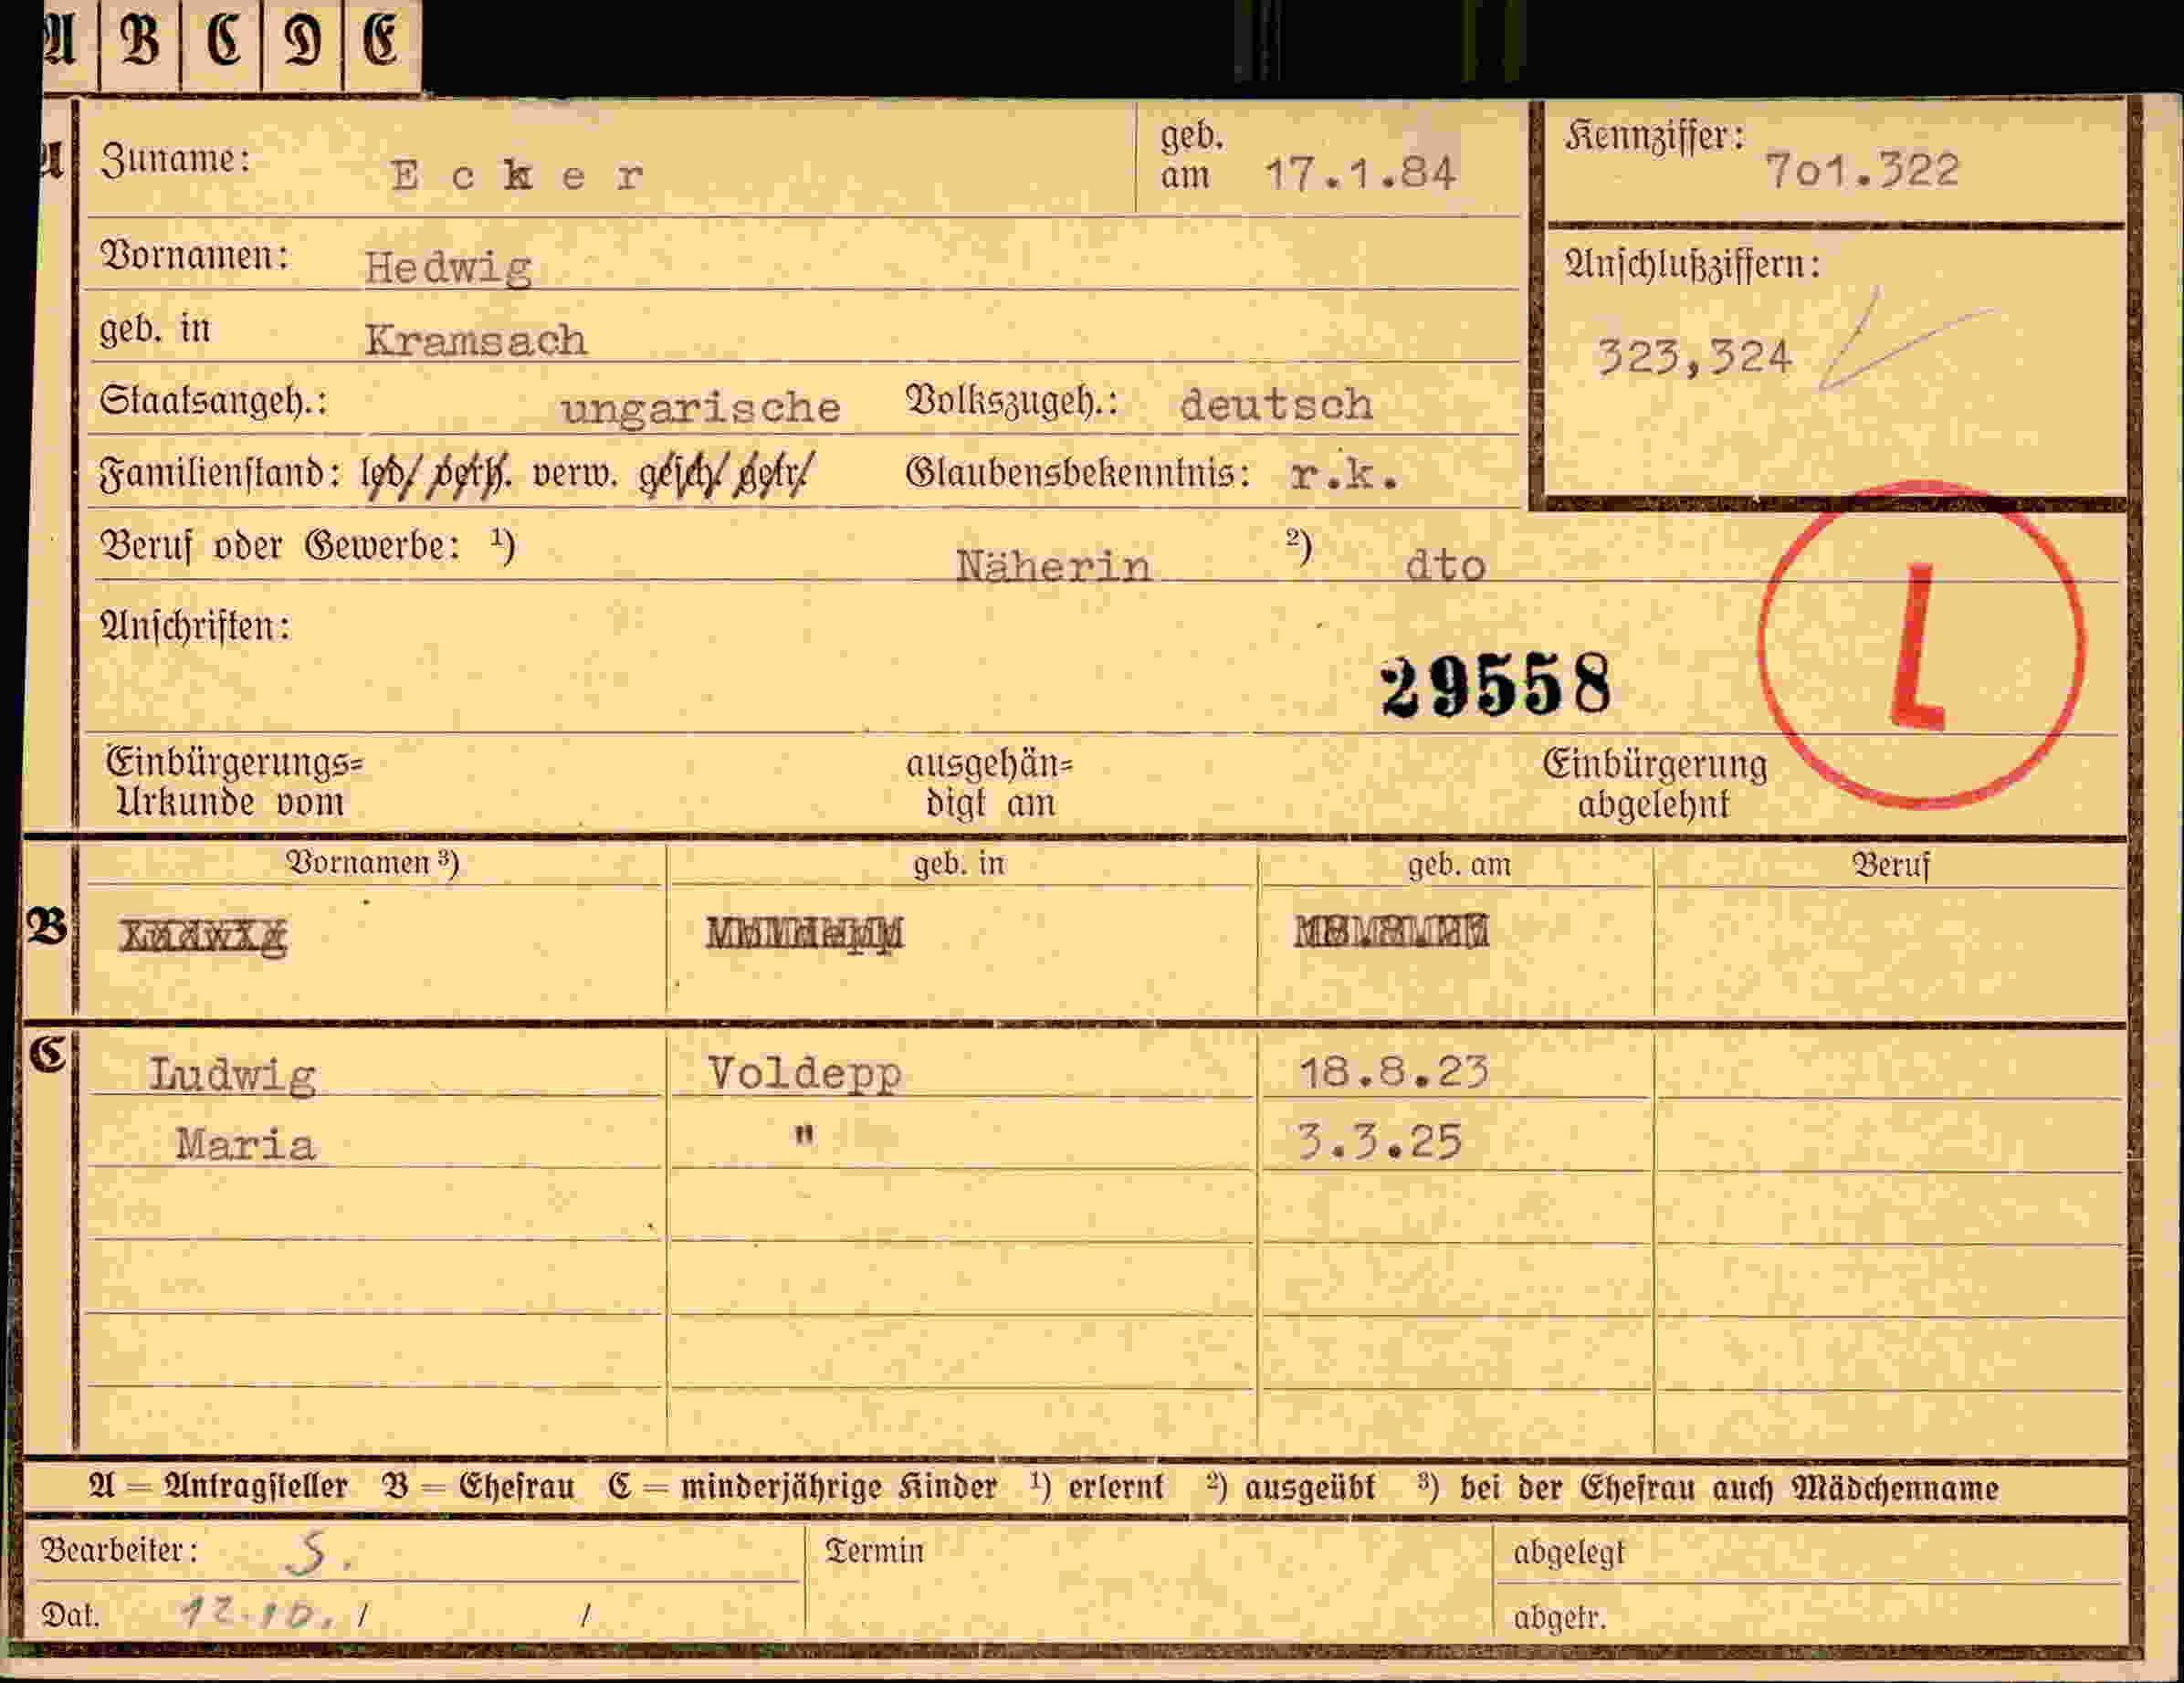 A B C D E
A Zuname: Ecker geb. am 17.1.84 Kennziffer: 701.322
Vornamen: Hedwig
Anschlußziffern:
geb. in Kramsach
323,324
Staatsangeh.: ungarische Volkszugeh.: deutsch
Familienstand: led. verh. verw. gesch. getr. Glaubensbekenntnis: r.k.
Beruf oder Gewerbe: ¹) Näherin ²) dto
Anschriften:
29558
L
Einbürgerungs=
Urkunde vom
ausgehän=
digt am
Einbürgerung
abgelehnt
Vornamen ³) geb. in geb. am Beruf
B Ludwig
C Ludwig Voldepp 18.8.23
Maria " 3.3.25
A = Antragsteller B = Ehefrau C = minderjährige Kinder ¹) erlernt ²) ausgeübt ³) bei der Ehefrau auch Mädchenname
Bearbeiter: S. Termin abgelegt
Dat. 12.10. / / abgetr.